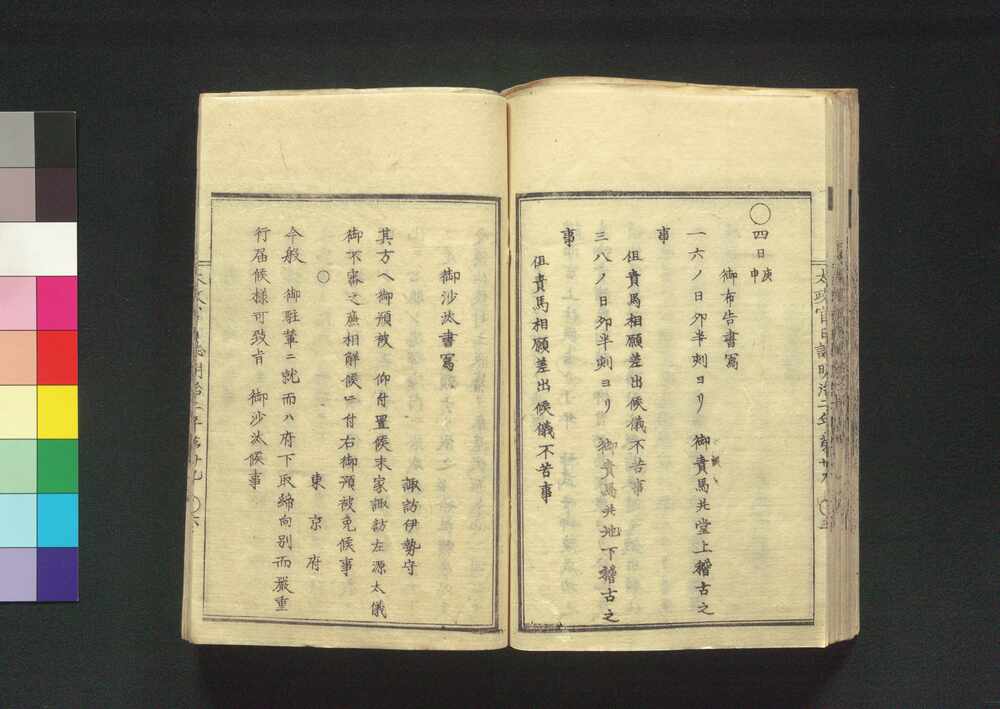 〇四日庚申
御布告書寫
一六ノ日卯半刻ヨリ　御貴馬共堂上稽古之
事
但貴馬相願差出候儀不苦事
三八ノ日卯半刻ヨリ　御貴馬共地下稽古之
事
但貴馬相願差出候儀不苦事
御沙汰書寫
諏訪伊勢守
其方ヘ御預被　仰付置候末家諏訪左源太儀
御不審之廉相解候ニ付右御預被免候事
〇
東京府
今般　御駐輦ニ就而ハ府下取締向別而嚴重
行届候樣可致旨　御沙汰候事
太政官日誌明治二年第廿九